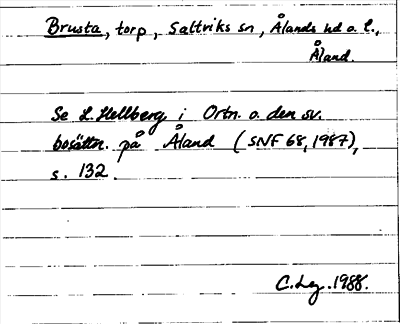 Brusta, torp, Saltviks sn, Ålands hd o. l.,
Åland.
Se L. Hellberg i Ortn. o. den sv.
bosättn. på Åland (SNF 68, 1987),
s. 132.
1988.